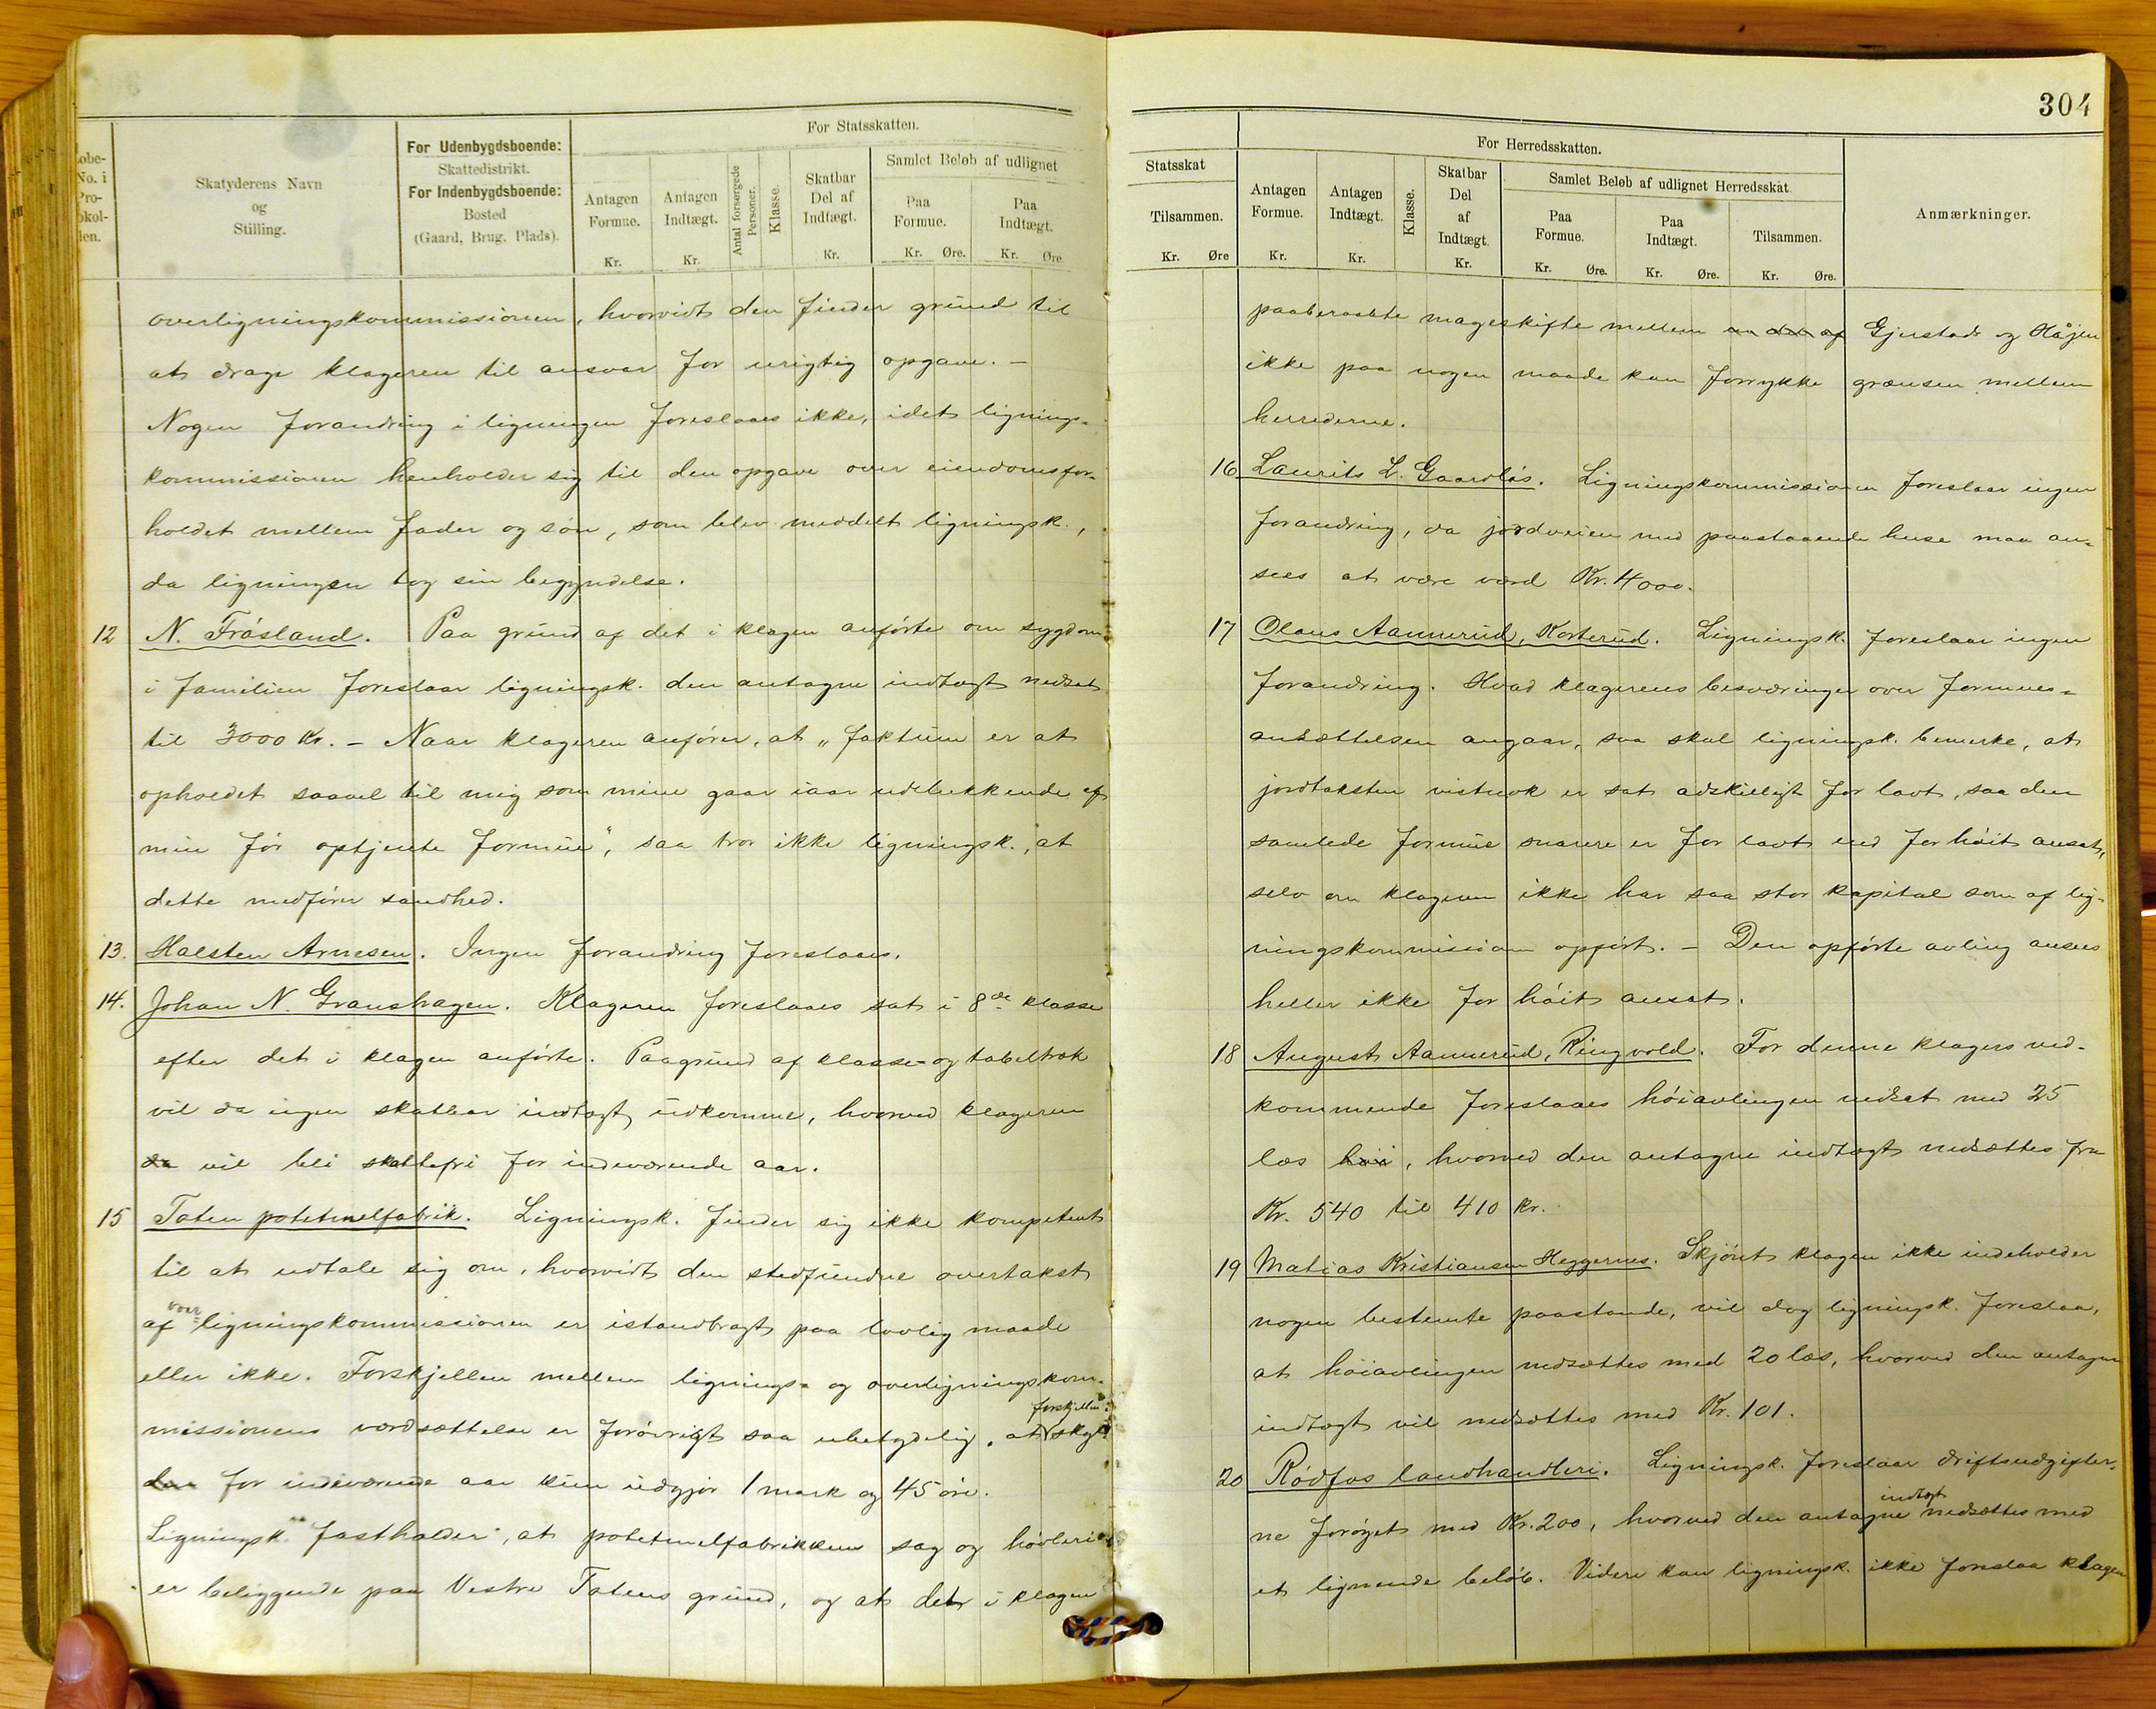 304
Løbe-No. i Protokollen.
Skatyderens Navn og Stilling.
For Udenbygdsboende:
Skattedistrikt.
For Indenbygdsboende:
Bosted
(Gaard, Brug, Plads).
For Statsskatten.
Antagen Formue. Kr.
Antagen Indtægt. Kr.
Antal forsørgede Personer.
Klasse.
Skatbar Del af Indtægt. Kr.
Samlet Beløb af udlignet
Paa Formue. Kr. Øre.
Paa Indtægt. Kr. Øre
overligningskommissionen, hvorvidt den finder grund til
at drage klageren til ansvar for urigtig opgave. –
Nogen forandring i ligningen foreslaaes ikke, idet lignings-
kommissionen henholder sig til den opgave over eiendomsfor-
holdet mellem fader og søn, som blev meddelt ligningsk.,
da ligningen tog sin begyndelse.
12 N. Frøsland. Paa grund af det i klagen anførte om sygdom
i familien foreslaar ligningsk. den antagne indtægt nedsat
til 3000 Kr. – Naar klageren anfører, at „faktum er at
opholdet saavel til mig som mine gaar iaar udelukkende af
min før optjente formue“, saa tror ikke ligningsk., at
dette medfører sandhed.
13. Halsten Arnesen. Ingen forandring foreslaaes.
14. Johan N. Granshagen. Klageren foreslaaes sat i 8de klasse
efter det i klagen anførte. Paagrund af klasse- og tabeltræk
vil da ingen skatbar indtægt udkomme, hvorved klageren
da vil bli skattefri for indeværende aar.
15 Toten potetmelfabrik. Ligningsk. finder sig ikke kompetent
til at udtale sig om, hvorvidt den stedfundne overtakst
af over ligningskommissionen er istandbragt paa lovlig maade
eller ikke. Forskjellen mellem lignings- og overligningskom-
missionens værdsættelse er forøvrigt saa ubetydelig, at forskjellen i skat
den for indeværende aar kun udgjør 1 mark og 45 øre.
Ligningsk. fastholder, at potetmelfabrikkens sag og høvleri
er beliggende paa Vestre Totens grund, og at det i klagen
Statsskat
Tilsammen.
Kr. Øre
For Herredsskatten.
Antagen Formue. Kr.
Antagen Indtægt. Kr.
Klasse.
Skatbar Del af Indtægt. Kr.
Samlet Beløb af udlignet Herredsskat
Paa Formue. Kr. Øre.
Paa Indtægt. Kr. Øre.
Tilsammen. Kr. Øre.
Anmærkninger.
paaberaabte mageskifte mellem en del af Gjerstad og Håjen
ikke paa nogen maade kan forrykke grænsen mellem
herrederne.
16 Laurits L. Gaardløs. Ligningskommissionen foreslaar ingen
forandring, da jordveien med paastaaende huse maa an-
sees at være værd Kr. 4000.
17 Olaus Aannerud, Korterud. Ligningsk. foreslaar ingen
forandring. Hvad klagerens besværinger over formues-
ansættelsen angaar, saa skal ligningsk. bemerke, at
jordtaksten vistnok er sat adskilligt for lavt, saa den
samlede formue snarere er for lavt end for høit ansat,
selv om klageren ikke har saa stor kapital som af lig-
ningskommissionen opført. – Den opførte avling ansees
heller ikke for høit ansat.
18 August Aannerud, Ringvold. For denne klagers ved-
kommende foreslaaes høiavlingen nedsat med 25
læs høi, hvorved den antagne indtægt nedsættes fra
Kr. 540 til 410 kr.
19 Matias Kristiansen Heggernes. Skjønt klagen ikke indeholder
nogen bestemte paastande, vil dog ligningsk. foreslaa,
at høiavlingen nedsættes med 20 læs, hvorved den antagne
indtægt vil nedsættes med Kr. 101.
20 Rødfos landhandleri. Ligningsk. foreslaar driftsudgifter-
ne forøget med Kr. 200, hvorved den antagne indtægt nedsættes med
et lignende beløb. Videre kan ligningsk. ikke foreslaa klagen